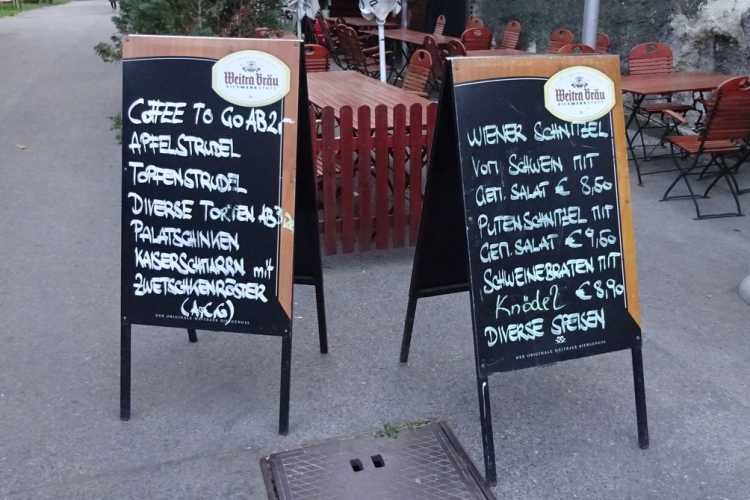 Weitra Bräu
BIERWERKSTATT
COFFEE TO GO AB 2,-
APFELSTRUDEL
TOPFENSTRUDEL
DIVERSE TORTEN AB 3,20
PALATSCHINKEN
KAISERSCHMARRN mit
ZWETSCHKENRÖSTER
(A,C,G)
DER ORIGINALE WELTBAUER BIERGENUSS
Weitra Bräu
BIERWERKSTATT
WIENER SCHNITZEL
VOM SCHWEIN MIT
GEM. SALAT € 8,50
PUTENSCHNITZEL MIT
GEM. SALAT € 9,50
SCHWEINEBRATEN MIT
Knödel € 8,90
DIVERSE SPEISEN
DER ORIGINALE WELTBAUER BIERGENUSS